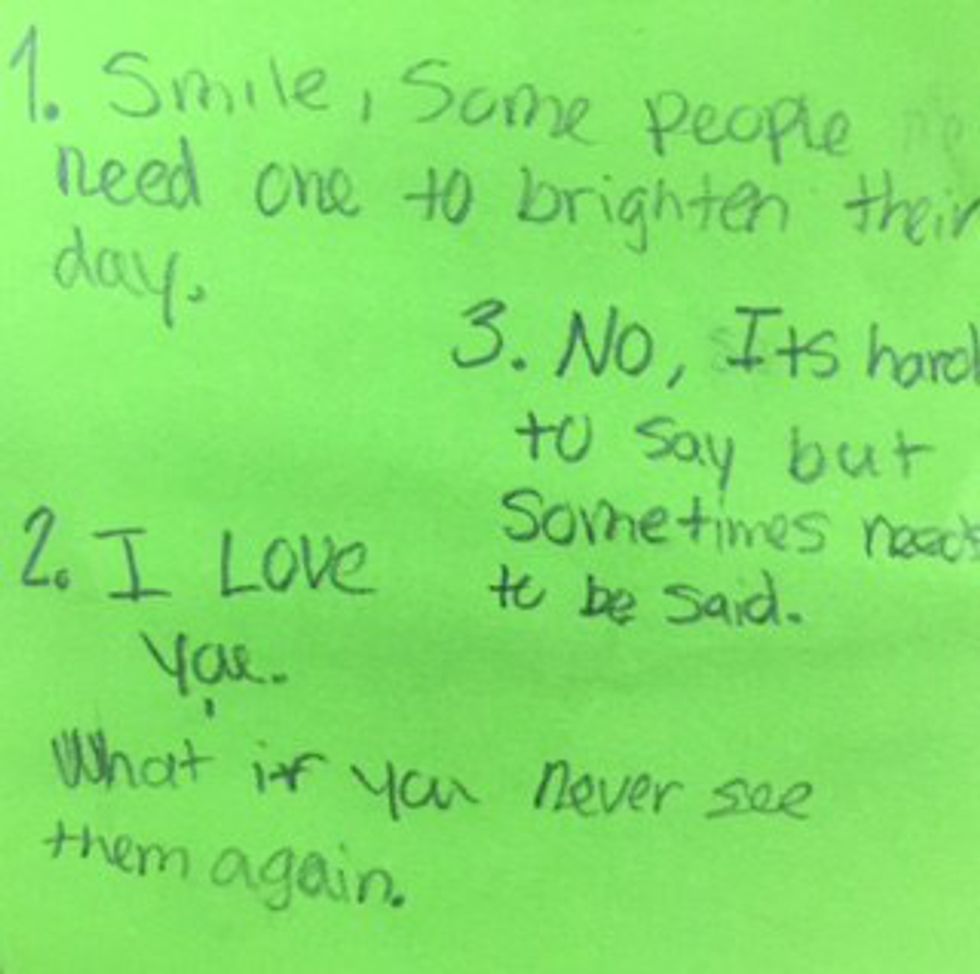 1. Smile, Some people
need one to brighten their
day.
2. I Love
you.
What if you never see
them again.
3. No, Its hard
to say but
Sometimes needs
to be said.